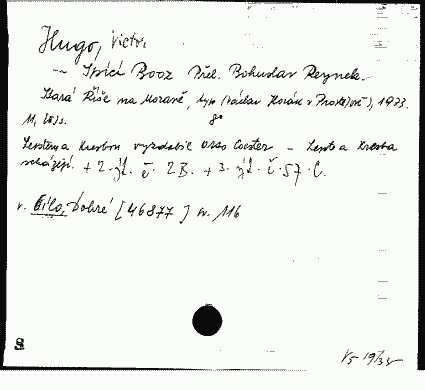 Hugo, Victor.
— Spící Booz Přel. Bohuslav Reynek.
Stará Říše na Moravě, typ. (Václav Horák v Prostějově), 1933.
11, [8] s. 8°
Leptem a kresbou vyzdobil Otto Coester – Lept a kresba
scházejí. + 2. výt. č. 2B. + 3. výt. č. 57. C.
v. Dílo, Dobré [46877] sv. 116
S
V5-19/35